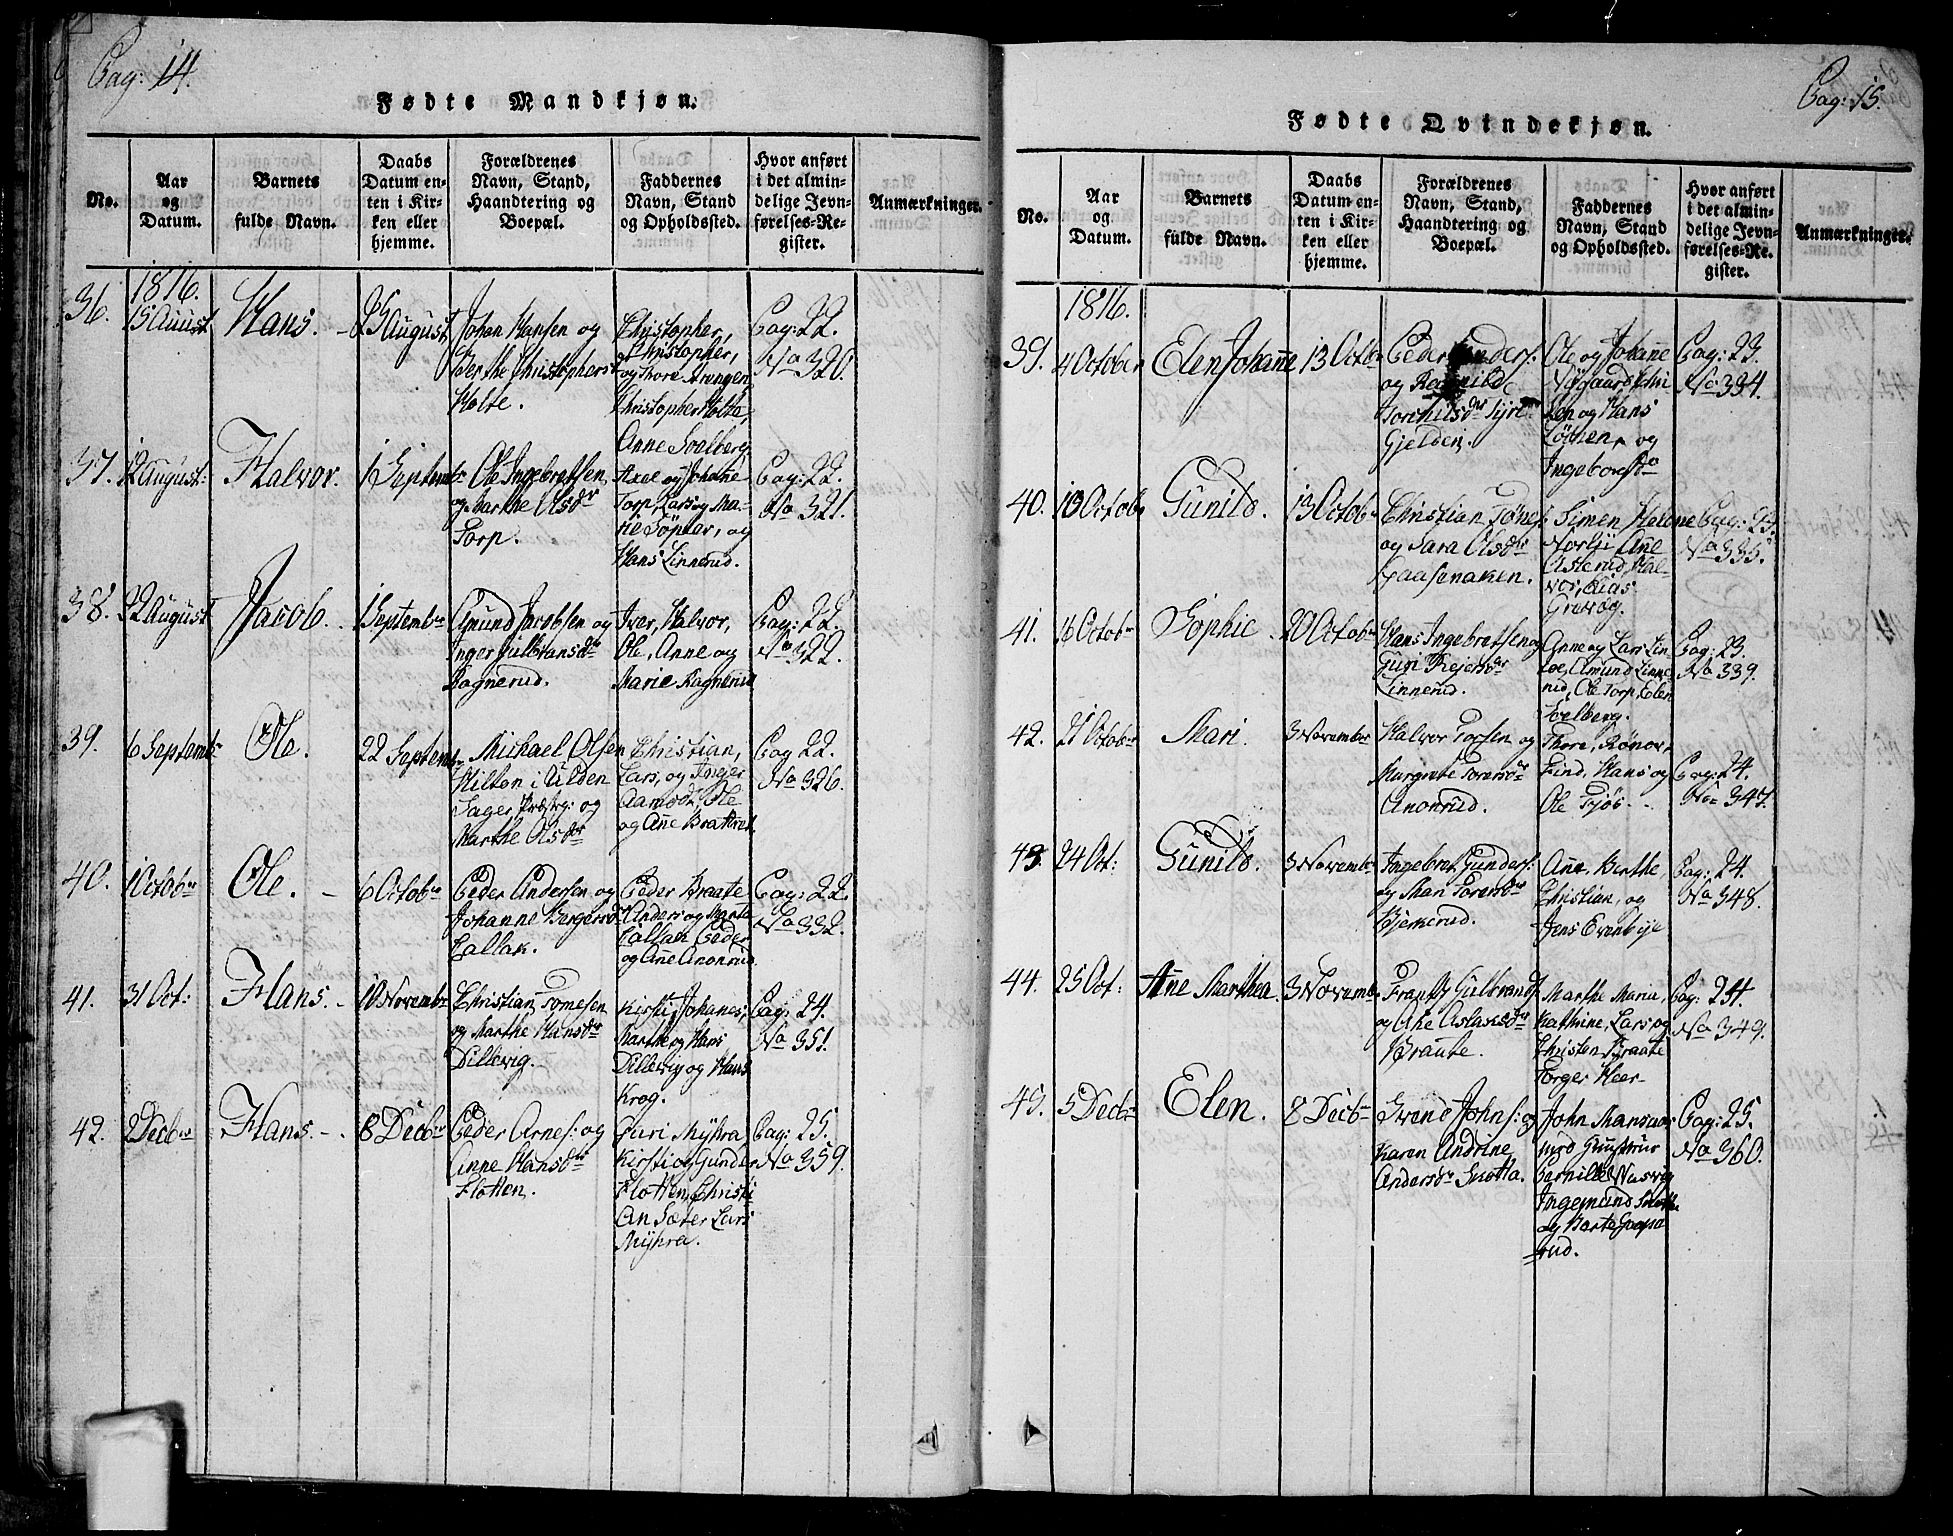 Pag: 14.
Fødte Mandkjøn.
No.
Aar
og
Datum.
Barnets
fulde Navn.
Daabs
Datum en-
ten i Kir-
ken eller
hjemme.
Forældrenes
Navn, Stand,
Haandtering og
Boepæl.
Faddernes
Navn, Stand
og Opholdssted.
Hvor anført
i det almin-
delige Jevn-
førelses-Re-
gister.
Anmærkninger.
1816.
36.
15 Auust
Hans.
25 August
Johan Hansen og
Berthe Christophers
Holte.
Christopher,
Christopher,
og Thore Arengen
Christopher Holte,
Anne Soelberg.
Pag: 22.
No 320.
37.
12 August:
Halvor.
1 Septembr
Ole Ingebretsen
og Marthe Olsdr
Torp.
Axel og Johanne
Torp, Lars og Ma-
rie Töpter, og
Hans Linnerud.
Pag: 22.
No 321.
38.
22 August
Jacob.
1 Septembr
Amund Jacobsen og
Inger Gulbransdr
Ragnerud.
Iver, Halvor,
Ole, Anne og
Marie Ragnerud
Pag: 22.
No 322.
39.
6 Septembr
Ole.
22 Septembr
Michael Olsen
Hilton i Ulden
Sager Præstg: og
Marthe Olsdr
Christian,
Lars, og Inger
Aamodt, Ole
og Ane Brattret.
Pag 22.
No 326.
40.
1 Octobr
Ole.
6 Octobr
Peder Andersen og
Johanne Bergersdr
Tallak.
Peder Braate
Anders og Marte
Tallak Peder
og Ane Anonrud.
Pag: 22.
No 332.
41.
31 Oct:
Hans.
10 Novembr
Christian Tomesen
og Marthe Hansdr
Dillevig.
Kirsti, Johanes,
Marthe og Hans
Dillevig og Hans
Krog.
Pag: 24.
No 351.
42.
2 Decbr
Hans.
8 Decbr
Peder Arnes: og
Anne Hansdr
Flotten.
Guri Myhra
Kirsti og Gunder
Flotten, Christi-
an Sæter Lars
Myhra.
Pag: 25.
No 359.
Pag: 15.
Fødte Qvindekjøn.
No.
Aar
og
Datum.
Barnets
fulde Navn.
Daabs
Datum en-
ten i Kir-
ken eller
hjemme.
Forældrenes
Navn, Stand,
Haandtering og
Boepæl.
Faddernes
Navn, Stand
og Opholdssted.
Hvor anført
i det almin-
delige Jevn-
førelses-Re-
gister.
Anmærkninger.
1816.
39.
4 October
Elen Johanne
13 Octobr
Peder Anders:
og Ragnild
Torchilsdr Tyri-
Gjelden.
Ole og Johanne
Nygaard
og Hans
Löchen, og
Ingeborg
Pag: 23.
No 334.
40.
10 Octobr
Gunild.
13 Octobr
Christian Tönes:
og Sara Olsdr
Gaasenaken.
Simen, Helene
Norbÿ Ane
Asterud, Hal-
vor, Elias
Grevog.
Pag: 23.
No 335.
41.
16 Octobr
Sophie
20 Octobr
Hans Ingebretsen og
Guri Rejersdr
Linnerud.
Anne og Lars Lin-
Amund Linne-
rud, Ole Torp, Elen
Soelberg.
Pag: 23.
No 339.
42.
21 Octobr
Mari.
3 Novembr
Halvor Torsen og
Margrete Toresdr
Anonrud.
Thore, Rønor,
Find, Hans og
Ole Tjös.
Pag: 24.
No 347.
43.
24 Oct:
Gunild.
3 Novembr
Ingebret Gunders:
og Mari Toresdr
Bjerkerud.
Ane, Berthe,
Christian, og
Jens Evenbye
Pag: 24.
No 348.
44.
25 Oct:
Ane Marthea.
3 Novembr
Frants Gulbrands:
og Ane Aslaksdr
Braate.
Marthe Maria,
Kathrine, Lars og
Christen Braate
Torger Heer
Pag: 24.
No 349.
45.
5 Decbr
Elen.
8 Decbr
Svend Johns: og
Karen Andrine
Andersdr Snotta.
John Mansaas
Pernille
Ingemund
og Marte
rud.
Pag: 25.
No 360.